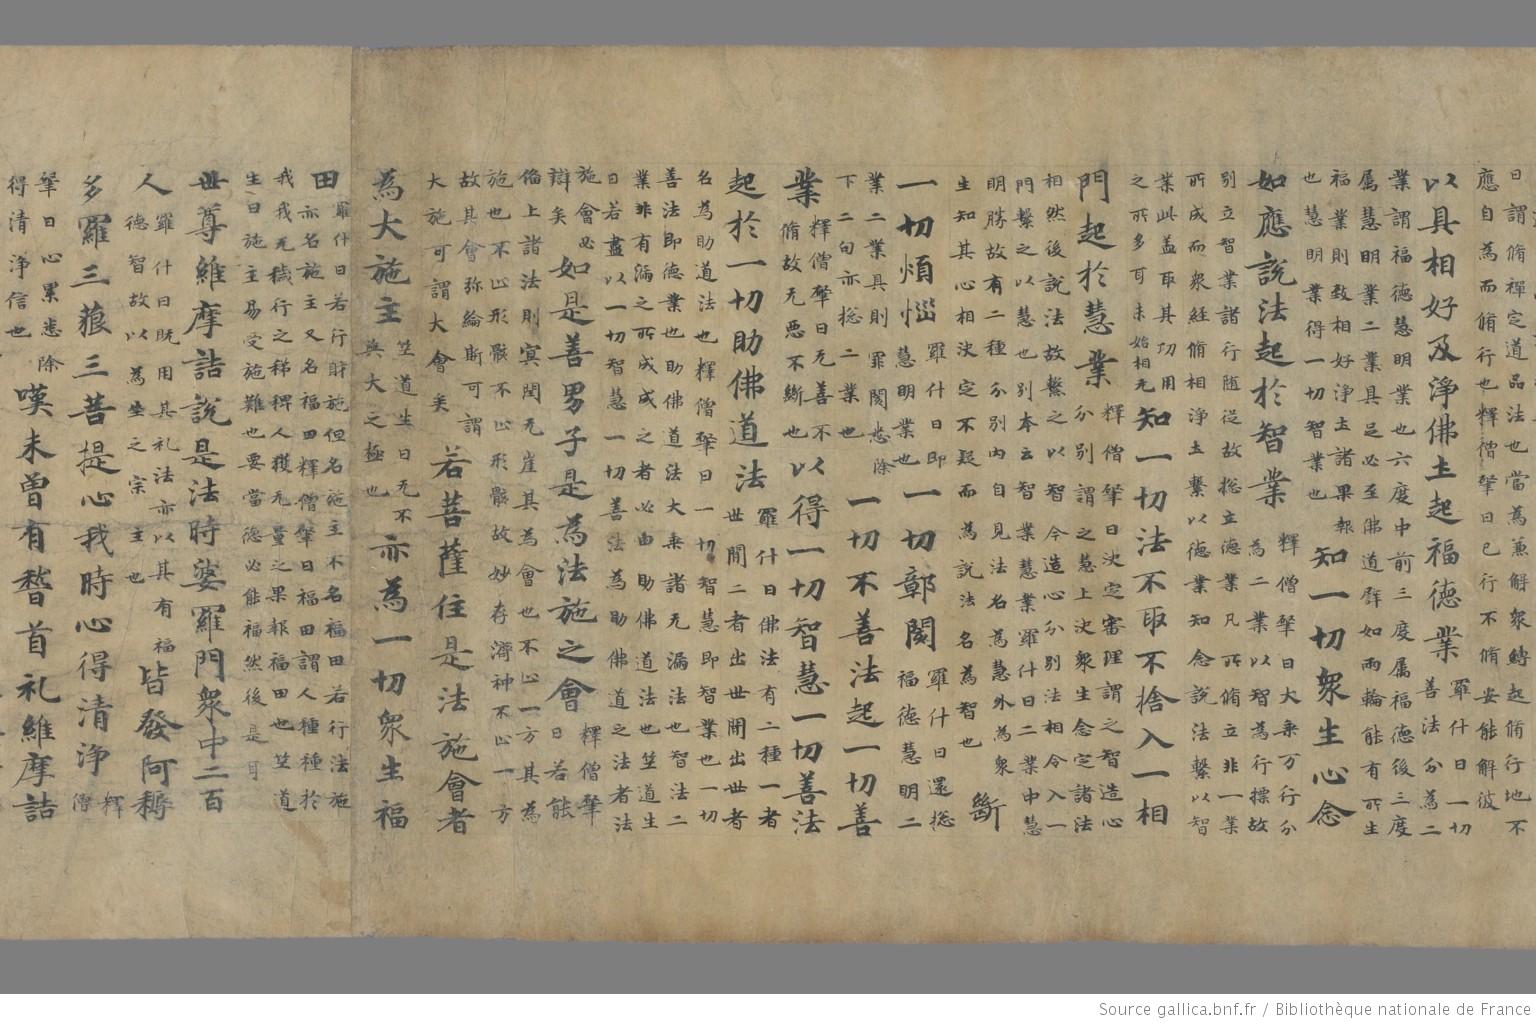 曰謂脩禪定道品法也當為兼解衆縛起脩行地不
應自為而脩行也釋僧肇曰己行不脩安能解彼
以具相好及淨佛土起福德業
羅什曰一切
善法分為二
業謂福德慧明業也六度中前三度属福德後三度
属慧明業二業具足必至佛道譬如兩輪能有所生
福業則致相好淨土諸果報
也慧明業得一切智業也
知一切衆生心念
如應說法起於智業
釋僧肇曰大乘万行分
為二業以智為行摽故
別立智業諸行随從故捴立德業凡所脩立非一業
所成而衆経脩相淨土繫以德業知念說法繫以智
業此蓋取其功用
之所多可未始相无
知一切法不取不捨入一相
門起於慧業
釋僧肇曰決定審理謂之智造心
分別謂之慧上決衆生念定諸法
相然後說法故繫之以智今造心分別法相令入一
門繫之以慧也別本云智業慧業羅什曰二業中慧
明勝故有二種分別內自見法名為慧外為衆
生知其心相決定不疑而為說法名為智也
斷
一切煩惱
羅什曰即
慧明業也
一切鄣閡
羅什曰還捴
福德慧明二
業二業具則罪閡悉除
下二句亦捴二業也
一切不善法起一切善
業
釋僧肇曰无善不
脩故无悪不斷也
以得一切智慧一切善法
起於一切助佛道法
羅什曰佛法有二種一者
世間二者出世間出世者
名為助道法也釋僧肇曰一切智慧即智業也一切
善法即德業也助佛道法大乘諸无漏法也智法二
業非有漏之所成成之者必由助佛道法也竺道生
曰若盡以一切智慧一切善法為助佛道之法者法
施會必
辯矣
如是善男子是為法施之會
釋僧肇
曰若能
備上諸法則冥閏无崖其為會也不止一方其為
施也不止形骸不止形骸故妙存濟神不止一方
故其會弥綸斯可謂
大施可謂大會矣
若菩薩住是法施會者
為大施主
竺道生曰无不
與大之極也
亦為一切衆生福
田
羅什曰若行財施但名施主不名福田若行法施
亦名施主又名福田釋僧肇曰福田謂人種種於
我我无穢行之稊稗人獲无量之果報福田也竺道
生曰施主易受施難也要當德必能福然後是耳
世尊維摩詰說是法時婆羅門衆中二百
人
羅什曰既用其礼法亦以其有福
德智故以為坐之宗主也
皆發阿耨
多羅三藐三菩提心我時心得清淨
釋
僧
肇曰心累悉除
得清淨信也
嘆未曾有稽首礼維摩詰
Source gallica.bnf.fr / Bibliothèque nationale de France